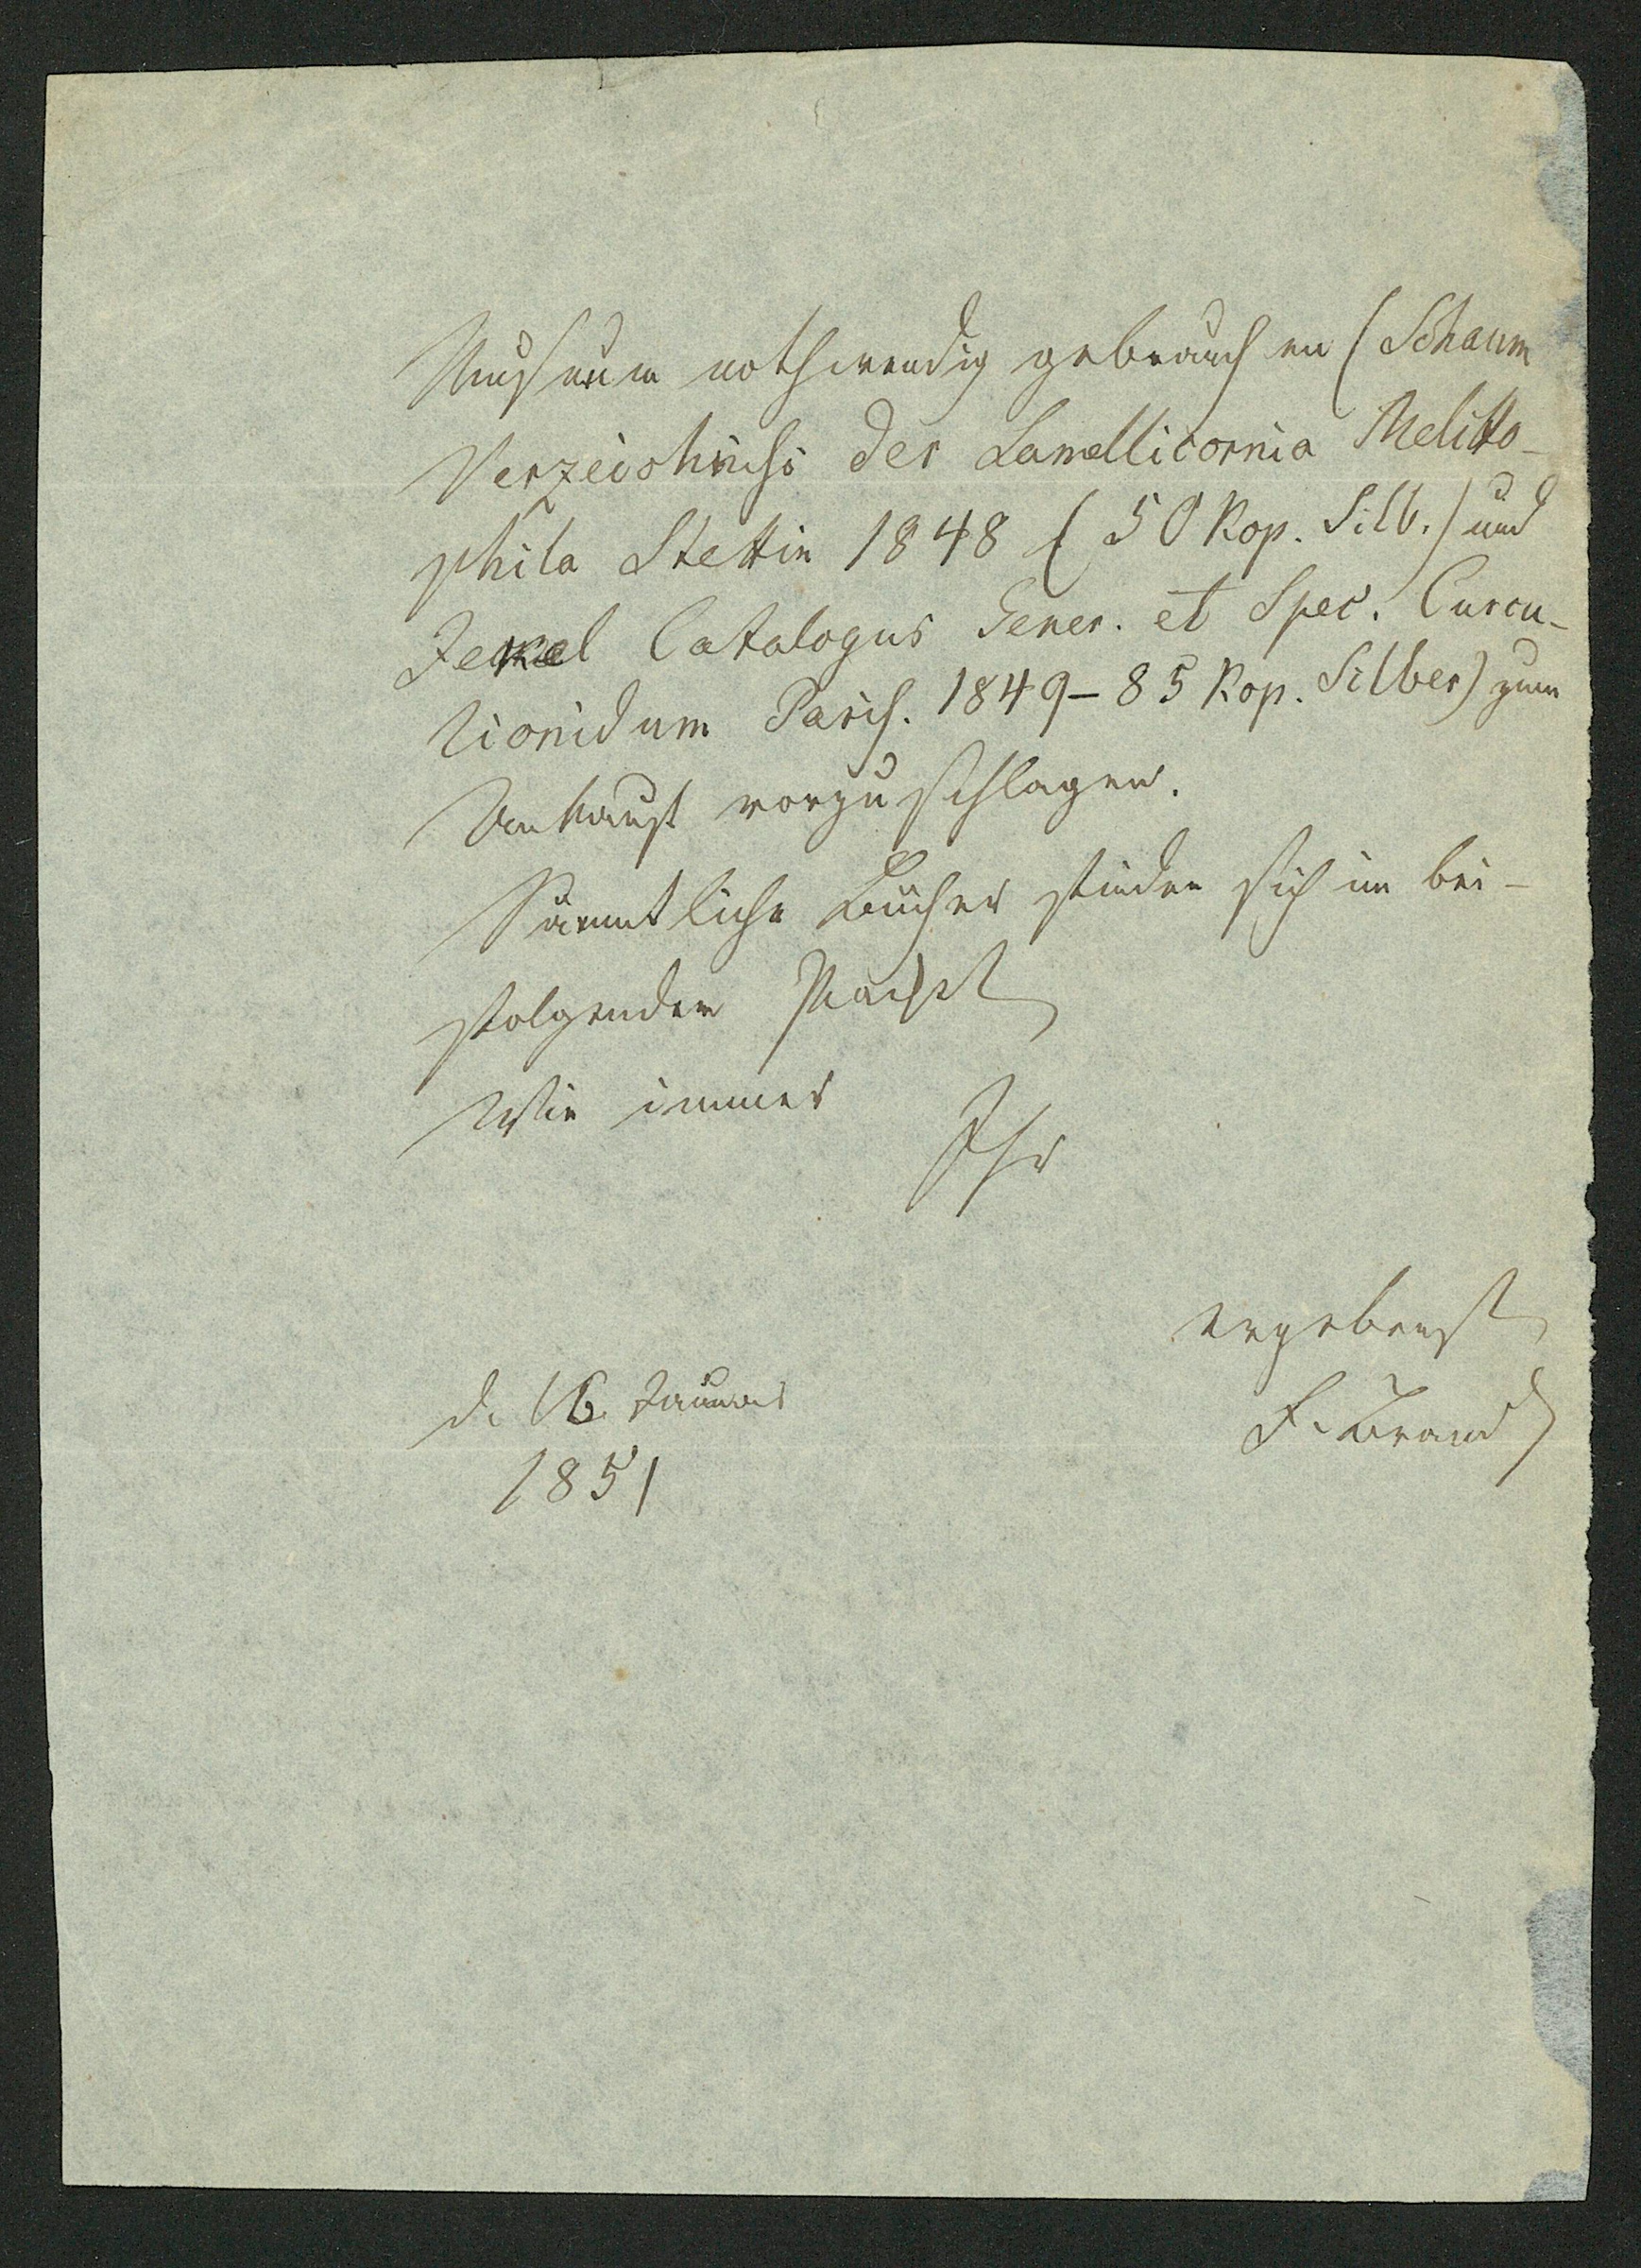 Museum nothwendig gebrauchen (Schaum
Verzeichniss der Lamellicornia Melitto-
phila Stettin 1848 (50 Kop. Silb.) und
Jekel Catalogus Gener. et Spec. Curcu-
lionidum Paris. 1849 – 85 Kop. Silber) zum
Ankauf vorzuschlagen.
Sämmtliche Bücher finden sich im bei-
folgenden Packet
Wie immer
Ihr
ergebenst
F. Brandt
d. 16. Januar
1851